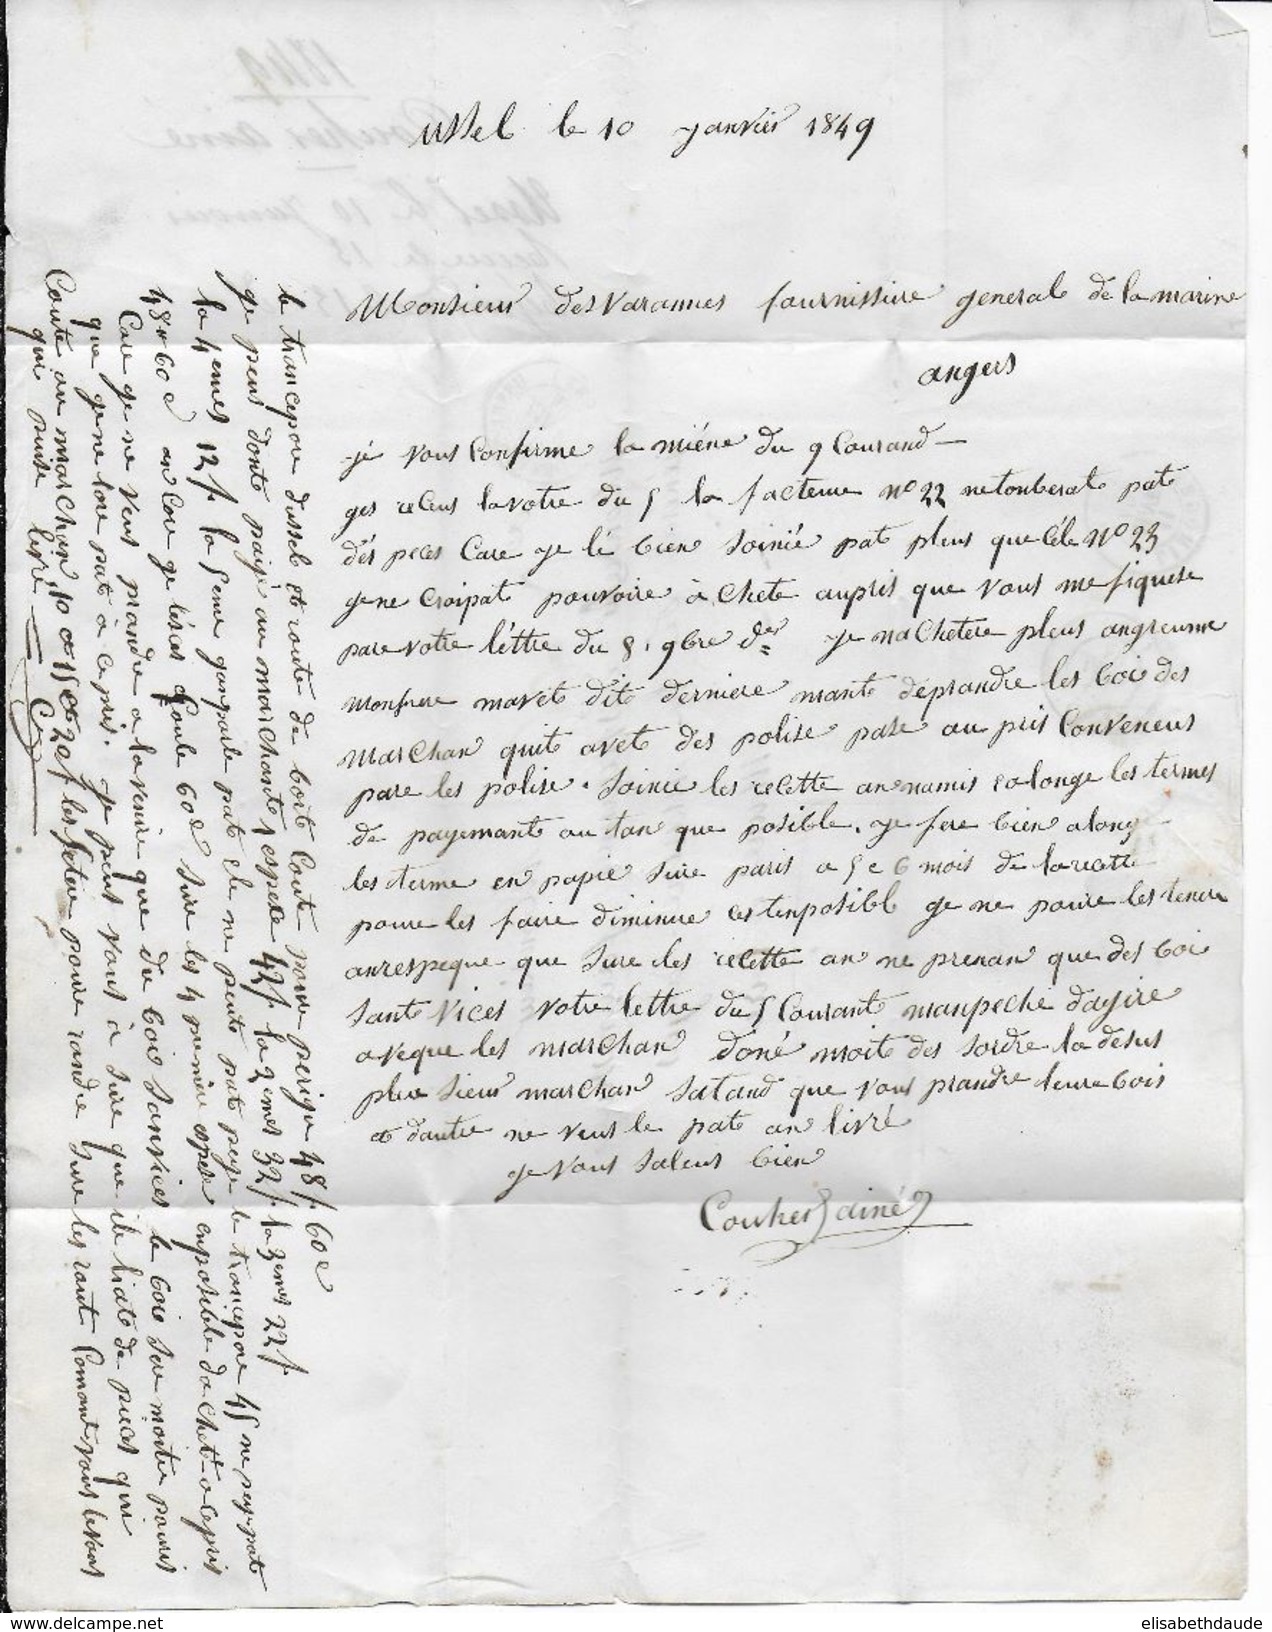 ussel le 10 janvier 1849
Monsieur desvarannes fournissure general de la marine
angers
je vous Confirme la miéne du 9 Courand
ges receus lavotre du 5 la facteure n° 22 netonberat pat
dés peces Care je lé bien soinié pat pleus que Céle N° 23
gene Croipat pouvoire à Chete aupris que vous me fiquere
pare votre léttre du 8. 9bre der je nachetere pleus angreume
monfrere mavet dit derniere mante déprandre les boi des
marchan quit avet des polise pase au pris Conveneus
pare les polise. Soinie les recette an namis ralonge les termes
de payemante au tan que posible. je fere bien alonge
les terme en papié sure paris a 5 e 6 mois de la recette
poure les faire diminue cest enposibl ge ne poure les tenire
anrespeque que sure les recette an ne prenan que des boi
sant vices votre lettre du 5 Courant manpeché dagire
aveque les marchan doné moite des sordre la désus
pleu sieur marchan satand que vous prandre leure bois
et dautre ne veus le pat an livré
je vous saleus bien
Couher ainé
le trancepore dussel et route de boit Coute poure perigu 48f 60c
je peus donte paijé au marchant 1 espece 42f la 2emes 32f la 3emes 22f
la 4emes 12f la 5eme ganparle pat ele ne peut pat peye le trancepore 45 ne peye pat
48f 60c an Core ge lésés Coule 60c sure les 4 premiere espese enposible da Cheté a ce pris
Care ge ne veus prandre a lavenire que du boi sanvices le boi sere moitie pouris
que gene lore pat à ce pris. je peus vous à sure que ile liate de pieces qui
Coute au marchan 10 et 15 et 20f les fetere poure randre sure les rant Comant vous levous
qui suite livré
C
elisabethdaude